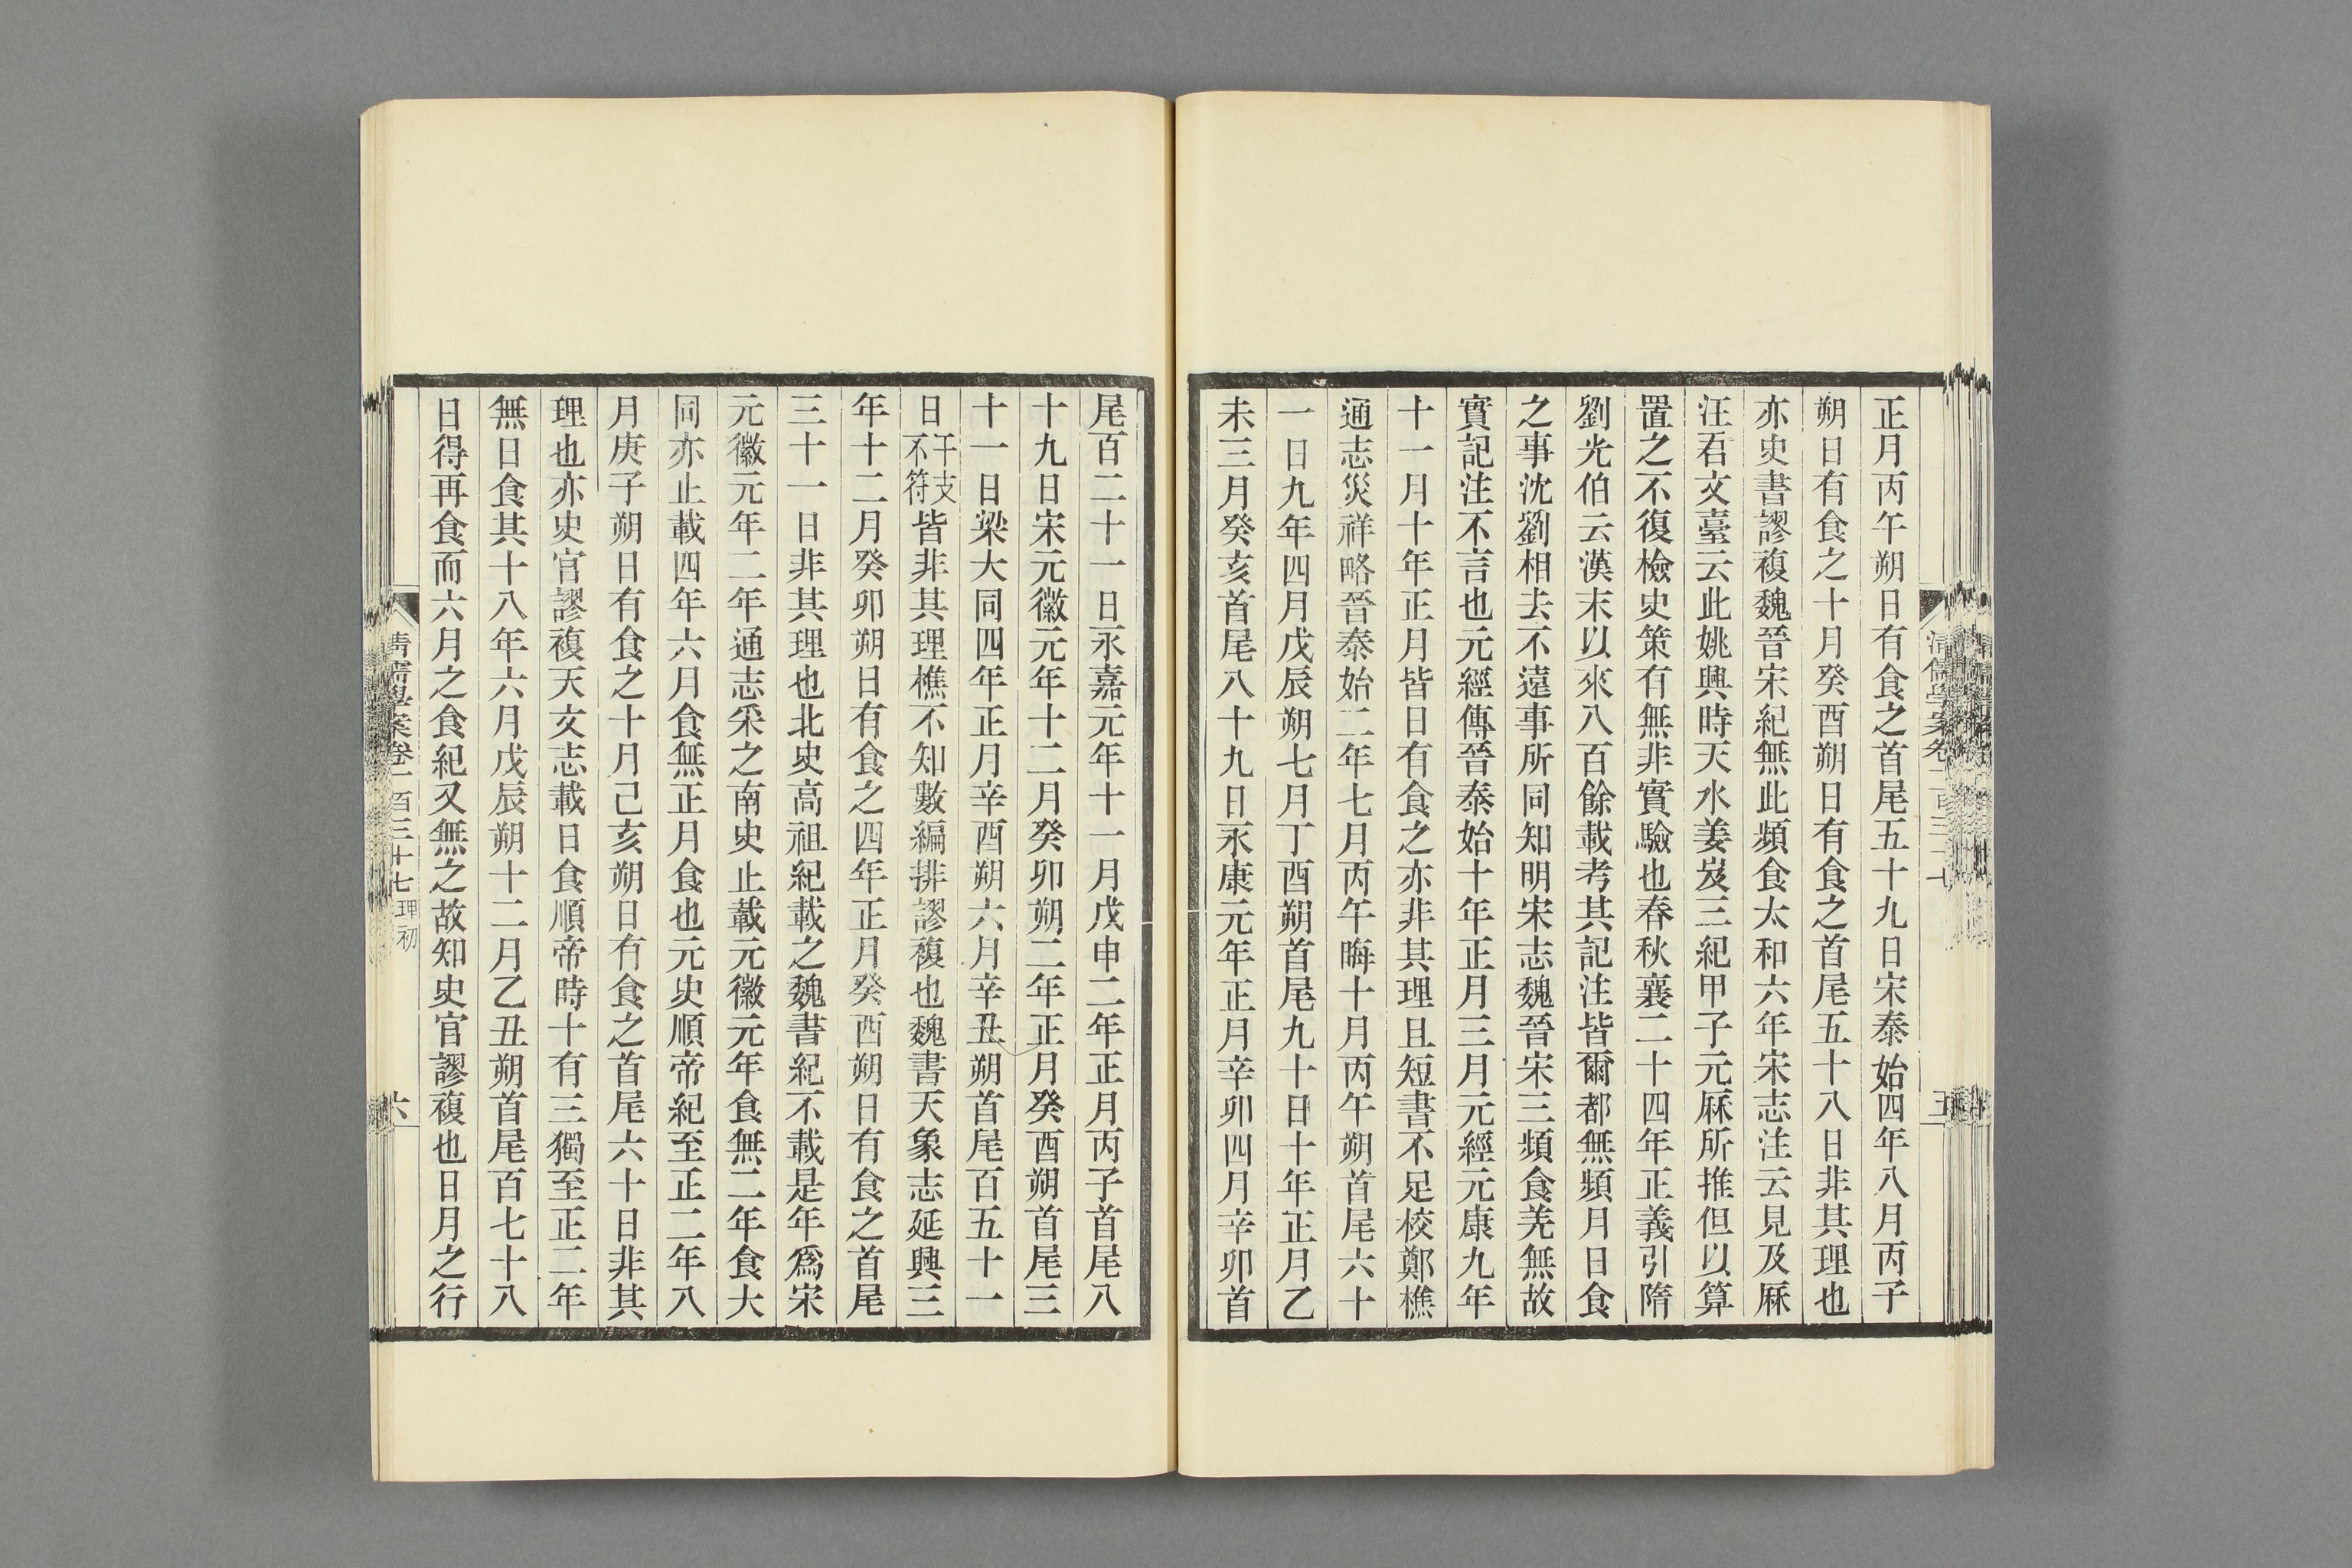 正月丙午朔日有食之首尾五十九日宋泰始四年八月丙子
朔日有食之十月癸酉朔日有食之首尾五十八日非其理也
亦史書謬複魏晉宋紀無此頻食太和六年宋志注云見及厤
汪君文臺云此姚興時天水姜岌三紀甲子元厤所推但以算
置之不復檢史策有無非實驗也春秋襄二十四年正義引隋
劉光伯云漢末以來八百餘載考其記注皆爾都無頻月日食
之事沈劉相去不遠事所同知明宋志魏晉宋三頻食羌無故
實記注不言也元經傳晉泰始十年正月三月元經元康九年
十一月十年正月皆日有食之亦非其理且短書不足校鄭樵
通志災祥略晉泰始二年七月丙午晦十月丙午朔首尾六十
一日九年四月戊辰朔七月丁酉朔首尾九十日十年正月乙
未三月癸亥首尾八十九日永康元年正月辛卯四月辛卯首
尾百二十一日永嘉元年十一月戊申二年正月丙子首尾八
十九日宋元徽元年十二月癸卯朔二年正月癸酉朔首尾三
十一日梁大同四年正月辛酉朔六月辛丑朔首尾百五十一
日干支不符皆非其理樵不知數編排謬複也魏書天象志延興三
年十二月癸卯朔日有食之四年正月癸酉朔日有食之首尾
三十一日非其理也北史高祖紀載之魏書紀不載是年爲宋
元徽元年二年通志采之南史止載元徽元年食無二年食大
同亦止載四年六月食無正月食也元史順帝紀至正二年八
月庚子朔日有食之十月己亥朔日有食之首尾六十日非其
理也亦史官謬複天文志載日食順帝時十有三獨至正二年
無日食其十八年六月戊辰朔十二月乙丑朔首尾百七十八
日得再食而六月之食紀又無之故知史官謬複也日月之行
清儒學案卷一百三十七 理初
六